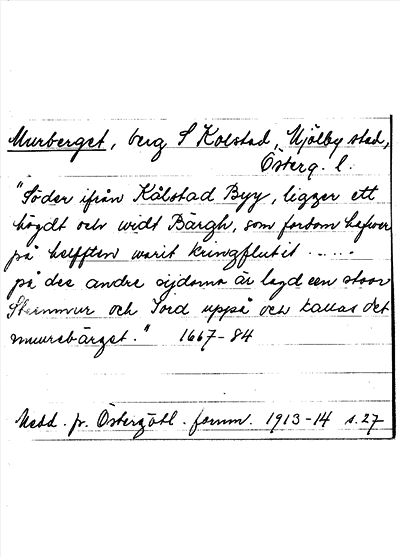 Murberget, berg S Kolstad, Mjölby stad,
Österg. l.
"Söder ifrån Kålstad Byy, ligger ett
högdt och widt Bärgh, som fordom hafwer
på helfften warit kringflutit . . . . .
på dee andre sijdorna är lagd een stoor
Steenmur och Jord uppå och kallas det
muurebärget." 1667-84
Medd. fr. Östergötl. fornm. 1913-14 s. 27